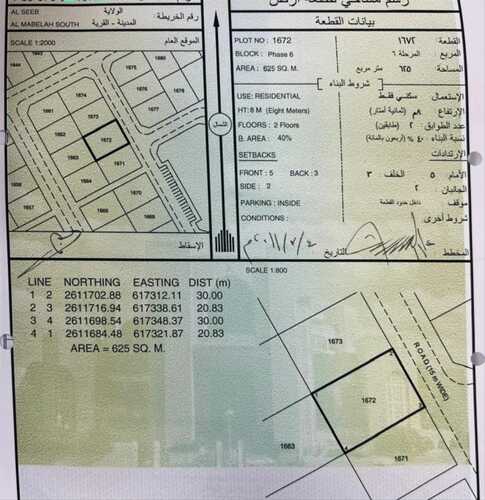 AL SEEB
الولاية
AL MABELAH SOUTH
المدينة - القرية
رقم الخريطة
SCALE 1:2000
الموقع العام
1673
1672
1662
1663
1664
1671
1670
1669
1657
الشمال
الإسقاط
بيانات القطعة
PLOT NO : 1672
١٦٧٢
القطعة:
BLOCK : Phase 6
المرحلة ٦
المربع
AREA : 625 SQ. M.
متر مربع
٦٢٥
المساحة:
شروط البناء
USE: RESIDENTIAL
سكني فقط
الإستعمال:
HT: 8 M (Eight Meters)
٨م (ثمانية أمتار)
الإرتفاع
FLOORS : 2 Floors
٢ (طابقين)
عدد الطوابق
B. AREA : 40%
٤٠٪ (أربعون بالمائة)
نسبة البناء
SETBACKS
الإرتدادات
FRONT : 5 BACK : 3
٣
الخلف
٥
الأمام
SIDE : 2
٢
الجانبان
PARKING : INSIDE
داخل حدود القطعة
موقف
CONDITIONS :
شروط أخرى
التاريخ
المخطط
LINE NORTHING EASTING DIST (m)
1 2 2611702.88 617312.11 30.00
2 3 2611716.94 617338.61 20.83
3 4 2611698.54 617348.37 30.00
4 1 2611684.48 617321.87 20.83
AREA = 625 SQ. M.
SCALE 1:800
1673
ROAD (15 m WIDE)
1672
1663
1671